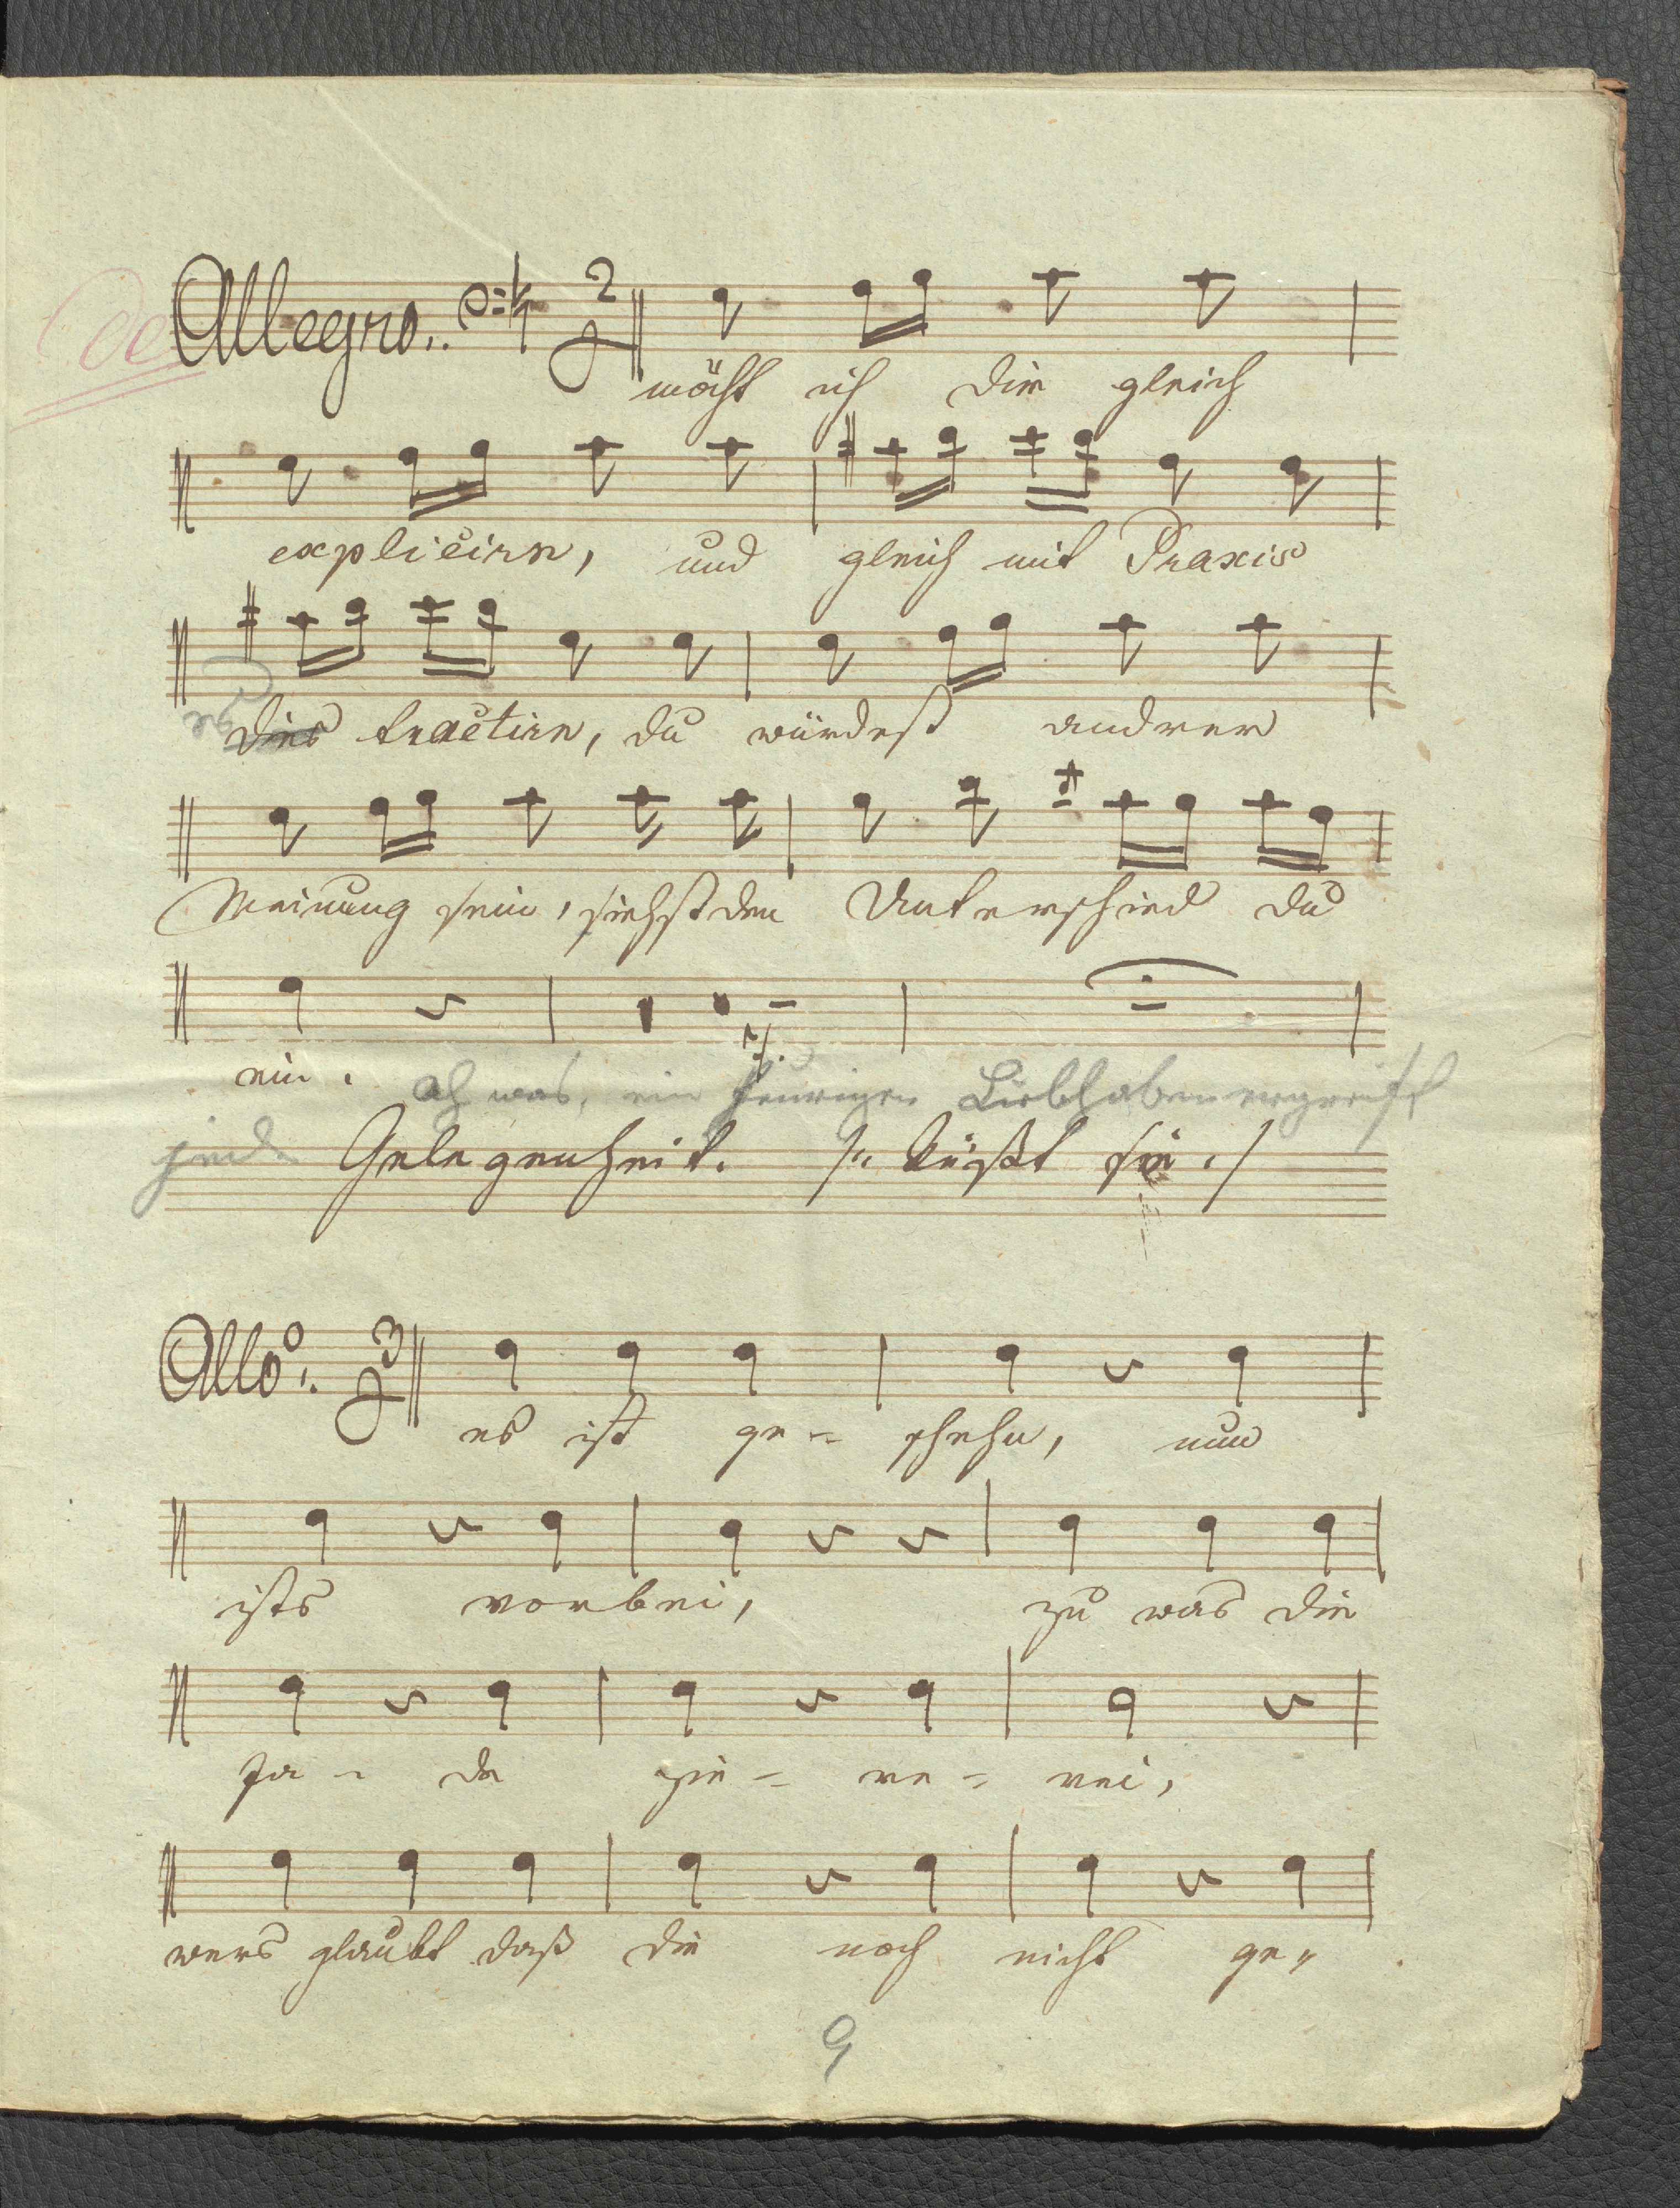 de Allegro.
möcht ich dir gleich
expliciren, und gleich mit Praxis
es dies tractiren, du würdest andrer
Meinung sein, siehst den Unterschied du
ein. Ah was, ein feuriger Liebhaber ergreift
jede Gelegenheit. /: küßt sie :/
Allo: 3
es ist ge- schehn, nun
ists vorbei, zu was die
fa- de Zie- re- rei,
wers glaubt daß die noch nicht ge-
9